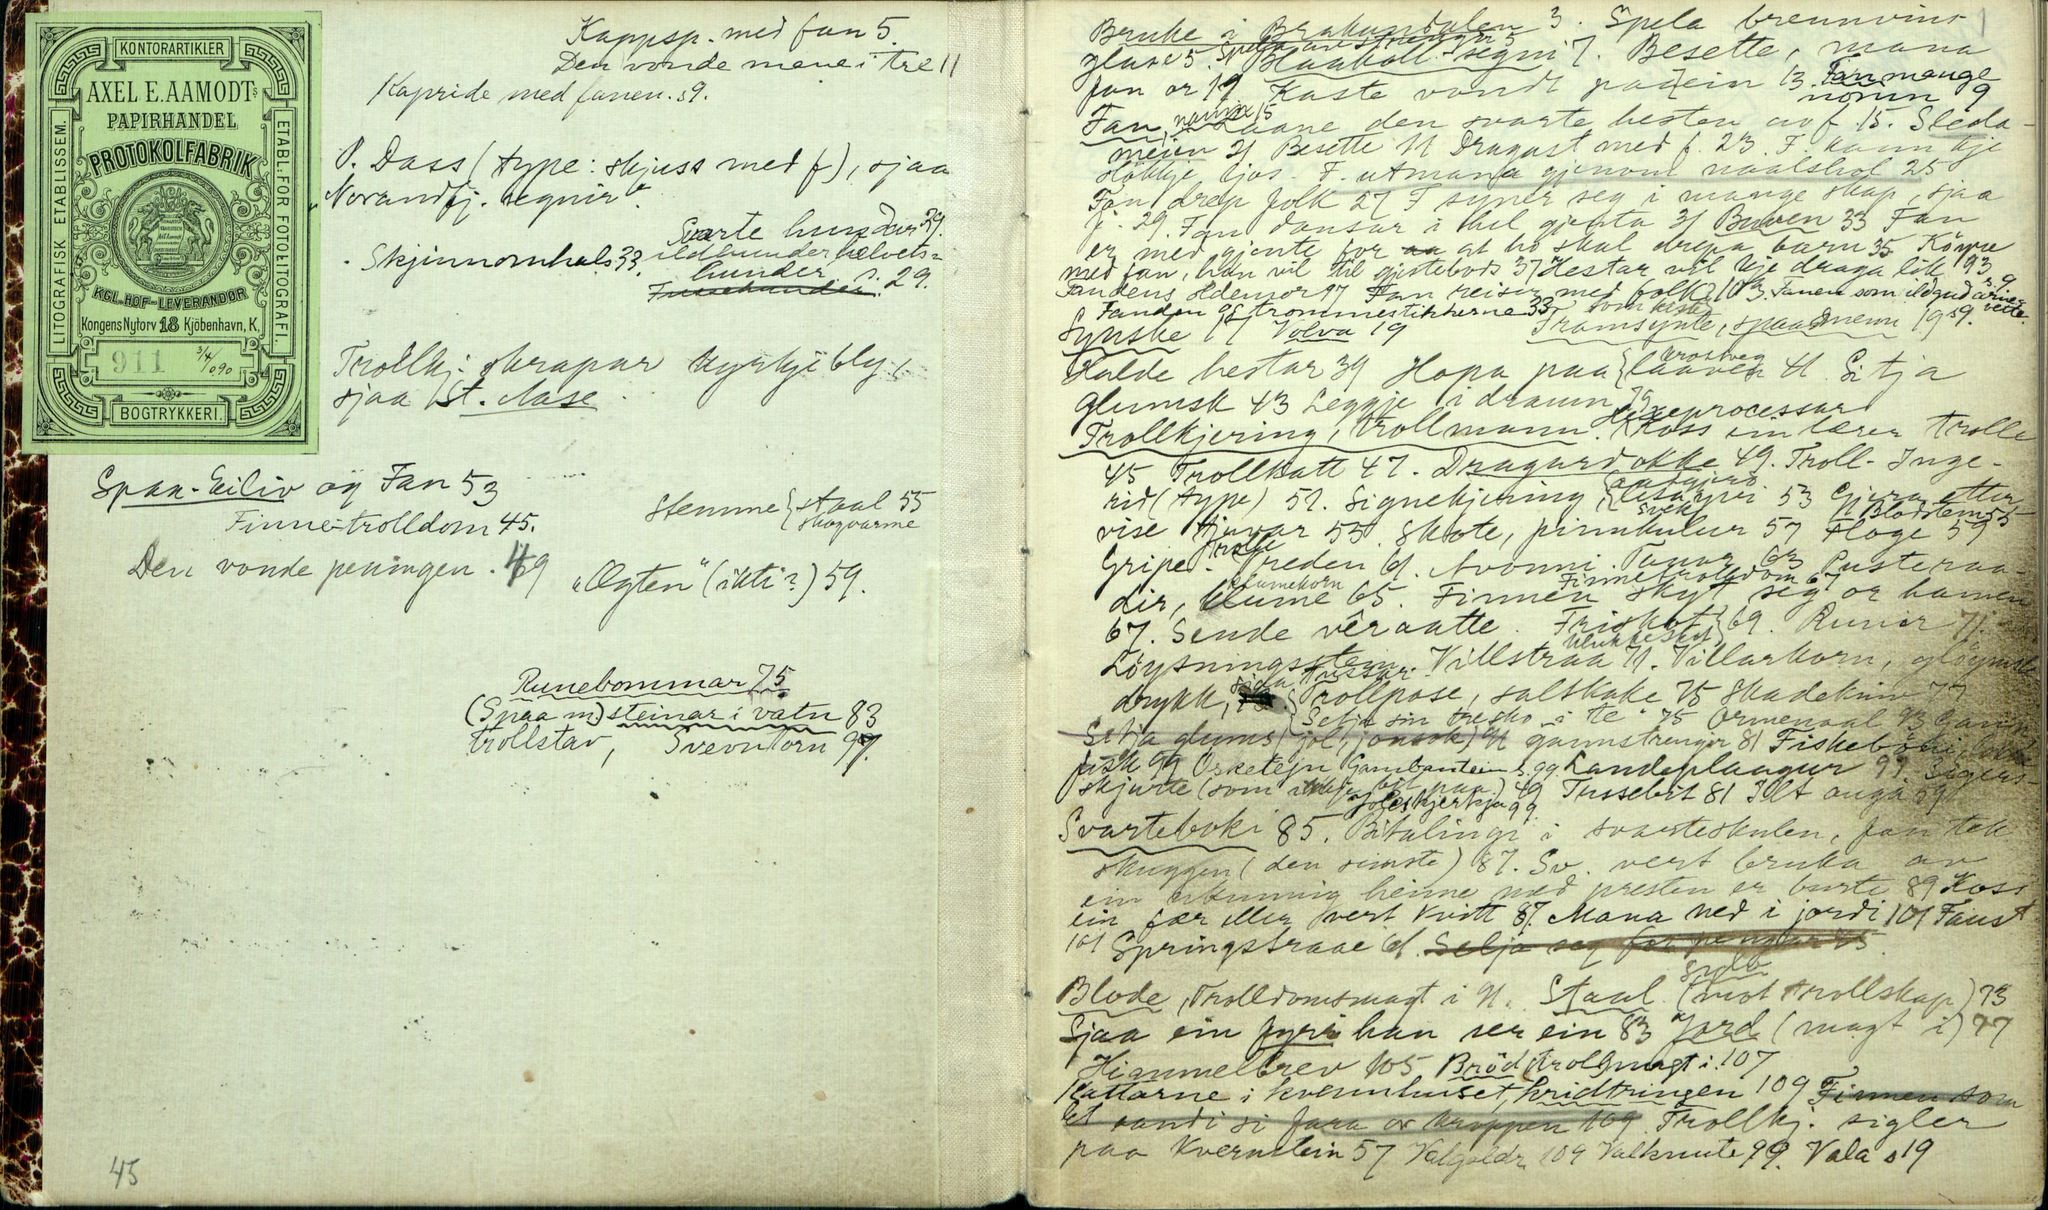 KONTORARTIKLER
LITOGRAFISK ETABLISSEM.
ETABL. FOR FOTOLITOGRAFI.
AXEL E. AAMODTs
PAPIRHANDEL
PROTOKOLFABRIK
KGL. HOF-LEVERANDØR
Kongens Nytorv 18 Kjöbenhavn, K.
911 3/4 090
BOGTRYKKERI.
Kappsp. med fan 5.
Den vonde mana i tre 11
Kapride med fanen. s9.
P. Dass (type: skjuss med f), sjaa
Norandfj. segnir".
Svarte hundar 29.
Skjinnomhals 33. ildhunder helvets=
hunder s. 29.
Trollkj. skrapar kyrkjebly,
sjaa St. Aase.
Spaa-Eiliv og Fan 53
Finne-trolldom 45.
Stemme { staal 55
skogvarme
Den vonde peningen. 49
"Ogten" (ikti?) 59.
Runebommar 75
(Spaa m) steinar i vatn 83
trollstav, Sveontorn 97.
45
1
Bruke i Brakandalen 3. Spela brennvins
glas 5. Blaakoll-segni 7. Besette, mana
fan or 19 Kaste vondt paa ein 13. Fan mange
nomn 9
Fan, namn 15 Laane den svarte hesten av f. 15. Sleda-
meien 21 Besette 11 Dragast med f. 23. F. kann kje
sløkkje ljos. F. utmana gjenom naalshol 25
Fan drep folk 27 F syner seg i mange skap, sjaa
f. 29. Fan dansar i hel gjenta 31 Buven 33 Fan
er med gjente for at ho skal drepa barn 35 Köyre
med fan, han vil til gjestebods 37 Hestar vil kje draga lik 93
Fandens oldemor 97 Fan reiser med folk 21 Fanen som ildgud s. 9
Fanden og trommestikkerne 33
Synske 17 Volva 19 Framsynte, spaamenn 19
Halde hestar 39 Hopa paa { krossveg
laaven 41. Sitja
glumsk 43 Leggje i draum 79
Trollkjering, trollmann. Hexeprocessar Koss ein lærer trolla
45 Trollkatt 47. Dragardokke 49. Troll-Inge-
rid (type) 51. Signekjering 53 Gjera etter
vise tjuvar 55 Skote, pinnkulur 57 Floge 59
Gripe. Vreden 61. Avonni. Tunar 63 Pusteraa-
dir, klume 65. Finnen skyt seg or hamen Finnetrolldom 67
67. Sende vêraatte. Friskot } 69. Runir 71.
Løysningsstein. Villstraa 71. Villarkorn, gløymsle
drykk, Trollpose, saltkake 75 Skadekniv 77
Setja sin tresko "i te" 75 Ormenaal 73 Gann
Sitja glums (jol, jonsok) 41 gannstrengir 81
fisk 99 Osketejn Gambantein s. 99 Landeplaagur 97 Sigers-
skjurte 49 Tussebit 81 Ilt auga 59
Svarteboki 85. Bitalingi i svarteskulen, fan tek
skuggen (den simste) 87. Sv. vert bruka av
ein ukunnig heime med presten er burte 89 Koss
ein fær eller vert kvitt 87. Mana ned i jordi 101 Faust
101 Springstraae 61. Selja seg for pengar 45
Blode, Trolldomsmagt i 71. Staal Sylv (mot trollskap) 73
Sjaa ein fyrr han ser ein 83 Jord (magt i) 77
Himmelbrev 105 Bröd (troll)magt i 107
Kattarne i kvernhuset, kridtringen 109 Finnen som
let aandi si fara or kroppen 109 Trollkj. sigler
paa kvernstein 57 Valgaldr 109 Valknute 99. Vala s19